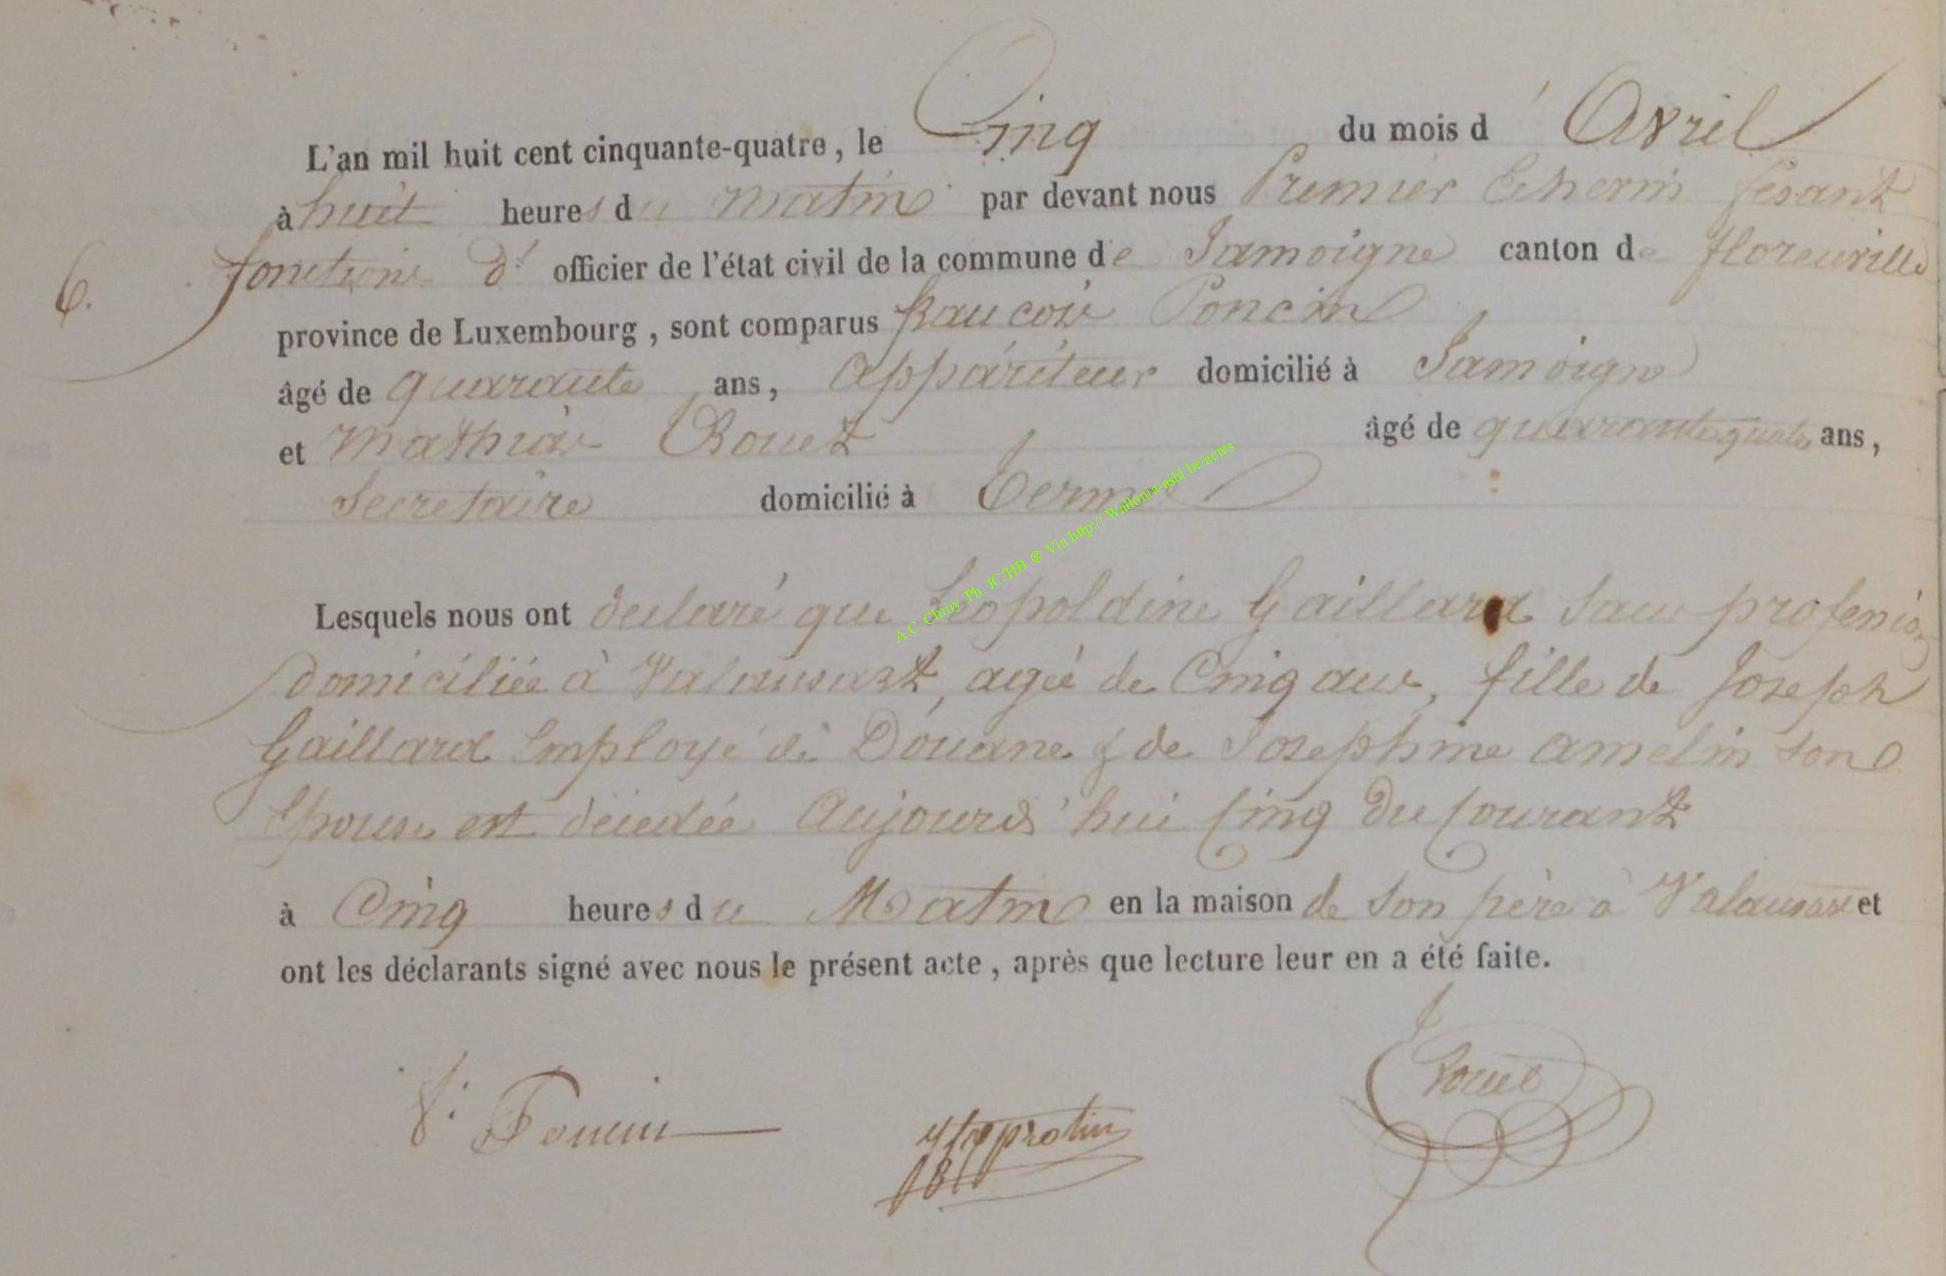 L'an mil huit cent cinquante-quatre, le Cinq du mois d' Avril
à huit heures du matin par devant nous Premier Echevin fesant
6. fonctions d' officier de l'état civil de la commune de Jamoigne canton de florenville
province de Luxembourg, sont comparus francois Poncin
âgé de quarante ans, appariteur domicilié à Jamoigne
et Mathias Rouet âgé de quarante quatre ans,
Secretaire domicilié à Termes
A.C. Chiny Ph. JC.HB ® Via http://Wallonia-asbl.be/actes
Lesquels nous ont declaré que Léopoldine Gaillard sans profession
domiciliée à Valansart, agée de Cinq ans, fille de Joseph
Gaillard Employé de Douane & de Josephine amelin son
Epouse est décedée Aujourd'hui Cinq du Courant
à Cinq heures du Matin en la maison de son père à Valansart et
ont les déclarants signé avec nous le présent acte, après que lecture leur en a été faite.
f. Poncin Rouet